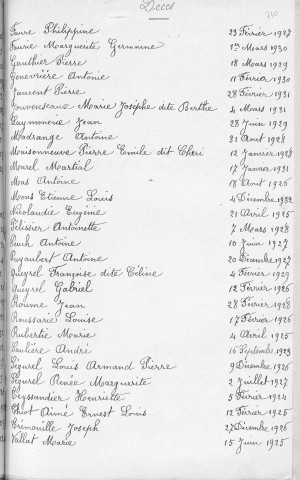 Décès
Faure Philippine 23 Février 1927
Faurie Marguerite Germaine 1er Mars 1930
Gauthier Pierre 18 Mars 1929
Genevrière Antonie 11 Février 1930
Jaucent Pierre 28 Février 1931
Jouvenseaux Marie Josèphe dite Berthe 4 Mars 1931
Laymonerie Jean 28 Juin 1929
Madrange Antoine 21 Août 1928
Maisonneuve Pierre Emile dit Chéri 12 Janvier 1928
Marel Martial 17 Janvier 1931
Mas Antoine 18 Août 1926
Mons Etienne Louis 4 Décembre 1932
Nicolaudie Eugénie 21 Avril 1925
Pélissier Antoinette 7 Mars 1928
Antoine 10 Juin 1927
Puyaubert Antoine 20 Décembre 1927
Françoise dite Céline 4 Février 1929
Gabriel 12 Février 1926
Roume Jean 28 Février 1928
Roussarie Louise 17 Février 1926
Rubertie Marie 4 Avril 1925
Saulière André 16 Septembre 1923
Louis Armand Pierre 9 Décembre 1926
Renée Marguerite 2 Juillet 1927
Teyssandier Henriette 5 Février 1924
Aimé Ernest Louis 12 Février 1925
Trémouille Joseph 27 Décembre 1926
Vallat Marie 15 Juin 1925